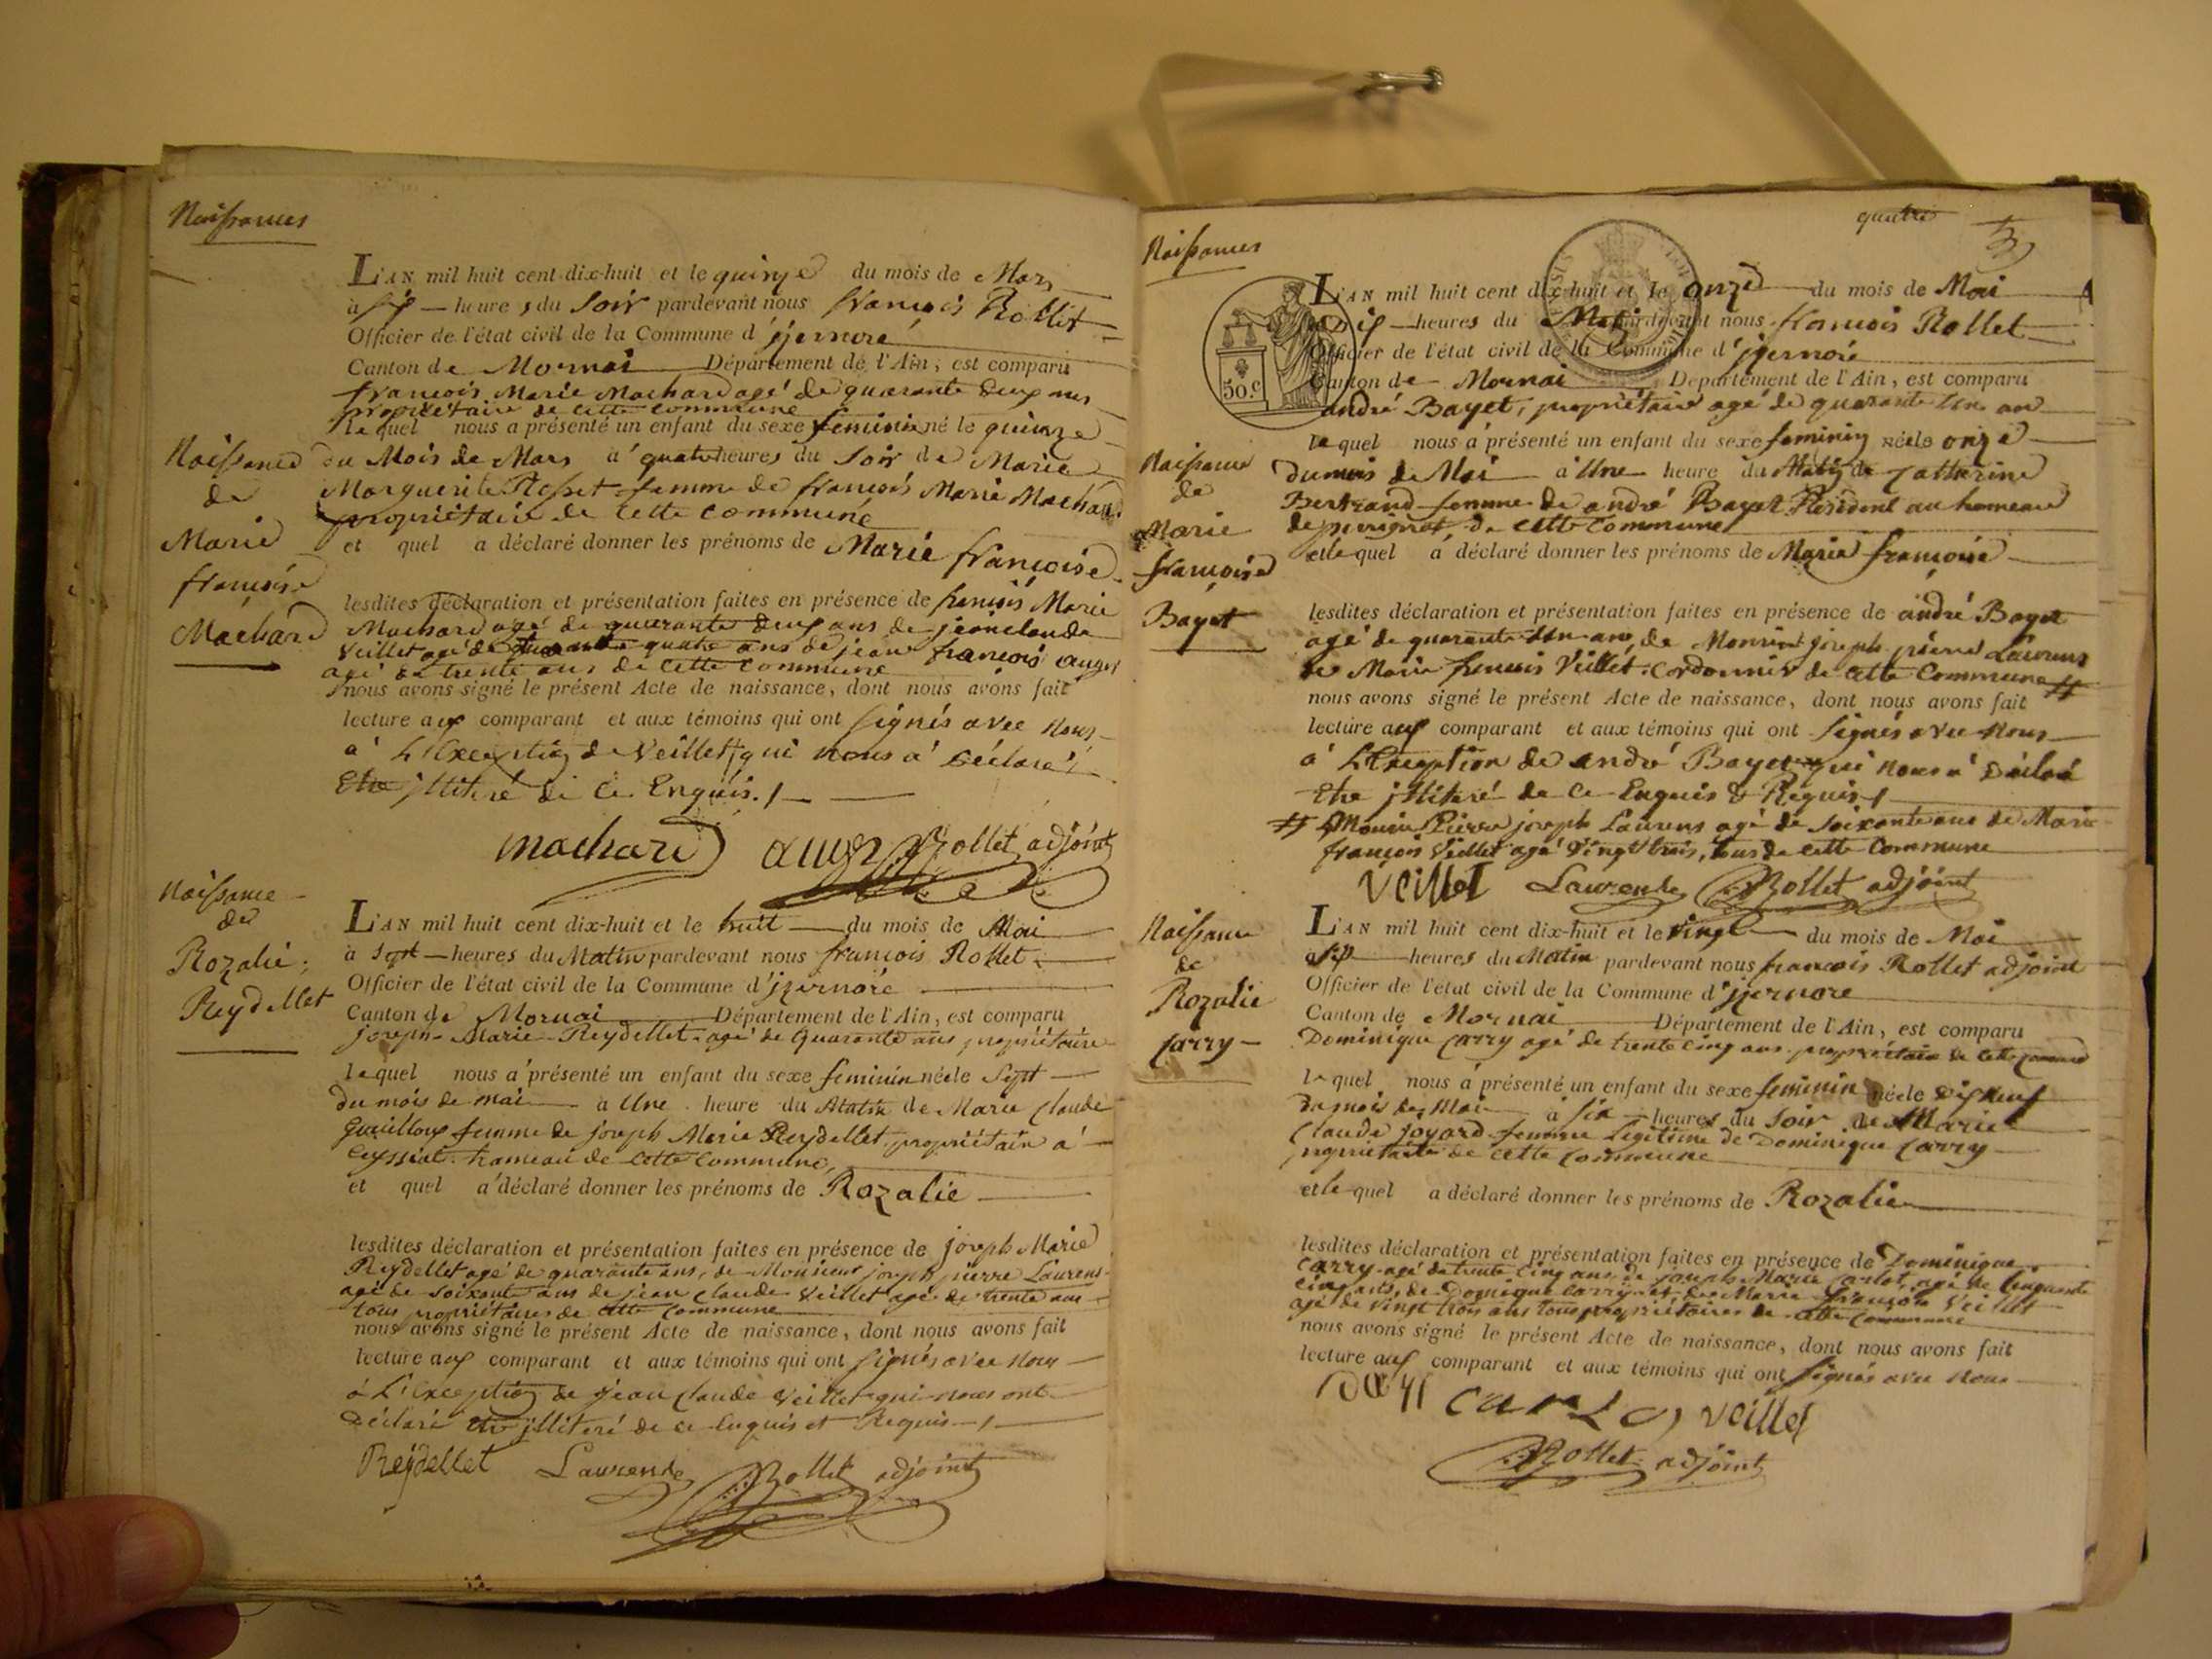 Naissances
L'AN mil huit cent dix-huit et le quinze du mois de Mars
à six heures du Soir pardevant nous françois Rollet
Officier de l'état civil de la Commune d'jzernore
Canton de Mornai Département de l'Ain, est comparu
françois Marie Machard agé de quarante deux ans
propriétaire de cette commune
lequel nous a présenté un enfant du sexe feminin né le quinze
du Mois de Mars à quatre heures du Soir de Marie
Marguerite femme de françois Marie Machard
propriétaire de Cette Commune
et quel a déclaré donner les prénoms de Marie françoise
lesdites déclaration et présentation faites en présence de francois Marie
Machard agé de quarante deux ans de jean claude
Veillet agé de quarante quatre ans de jean françois auger
agé de trente ans de cette commune
nous avons signé le présent Acte de naissance, dont nous avons fait
lecture aux comparant et aux témoins qui ont signés avec nous
à L'Exception de Veillet qui nous a déclaré
Etre jlliteré de Ce Enquis
Naissance
de
Marie
françoise
Machard
machard auger Rollet adjoint
Naissance
de
Rozalie
Reydellet
L'AN mil huit cent dix-huit et le huit du mois de Mai
à sept heures du Matin pardevant nous françois Rollet
Officier de l'état civil de la Commune d'jzernore
Canton de Mornai Département de l'Ain, est comparu
joseph Marie Reydellet agé de quarante ans propriétaire
lequel nous a présenté un enfant du sexe feminin née le Sept
du mois de mai à Une heure du Matin de Marie Claude
Guilloux femme de joseph Marie Reydellet propriétaire à
Ceyssiat hameau de cette commune
et quel a déclaré donner les prénoms de Rozalie
lesdites déclaration et présentation faites en présence de joseph Marie
Reydellet agé de quarante ans, de Monsieur joseph pierre Laurens
agé de soixante ans de jean claude Veillet agé de trente ans
tous propriétaires de cette commune
nous avons signé le présent Acte de naissance, dont nous avons fait
lecture aux comparant et aux témoins qui ont signés avec nous
à L'Exception de jean claude Veillet qui nous ont
déclaré être jlliteré de ce Enquis et Requis
Reydellet Laurens Rollet adjoint
quatre
Naissances
50.c
L'AN mil huit cent dix-huit et le onze du mois de Mai
à six heures du Matin pardevant nous francois Rollet
Officier de l'état civil de la Commune d'jzernore
Canton de Mornai Département de l'Ain, est comparu
andré Bayet, propriétaire agé de quarante Un an
le quel nous a présenté un enfant du sexe feminin née le onze
du mois de Mai à Une heure du Matin de Catherine
Bertrand femme de andré Bayet Résident au hameau
de perignat de cette commune
et le quel a déclaré donner les prénoms de Marie françoise
lesdites déclaration et présentation faites en présence de andré Bayet
agé de quarante Un an, de Monsieur joseph pierre Laurens
de Marie francois Veillet Cordonnier de cette Commune #
nous avons signé le présent Acte de naissance, dont nous avons fait
lecture aux comparant et aux témoins qui ont signés avec nous
à L'Exception de andré Bayet qui nous a déclaré
Etre jlliteré de ce Enquis & Requis
# Monsieur Pierre joseph Laurens agé de soixante ans de Marie
françois Veillet agé Vingt trois, tous de cette Commune
Naissance
de
Marie
françoise
Bayet
Veillet Laurens Rollet adjoint
Naissance
de
Rozalie
Carry
L'AN mil huit cent dix-huit et le vingt du mois de Mai
à six heures du Matin pardevant nous francois Rollet adjoint
Officier de l'état civil de la Commune d'jzernore
Canton de Mornai Département de l'Ain, est comparu
Dominique Carry agé de trente cinq ans propriétaire de cette commune
le quel nous a présenté un enfant du sexe feminin née le dix neuf
du mois de Mai à six heures du Soir de Marie
Claude joyard femme légitime de Dominique Carry
propriétaire de cette commune
et le quel a déclaré donner les prénoms de Rozalie
lesdites déclaration et présentation faites en présence de Dominique
Carry agé de trente cinq ans, de joseph Marie Carlot agé de Cinquante
cinq ans, de Dominique Carry et de Marie françois Veillet
agé de vingt trois ans tous propriétaires de cette commune
nous avons signé le présent Acte de naissance, dont nous avons fait
lecture aux comparant et aux témoins qui ont signés avec nous
Veillet
Rollet adjoint